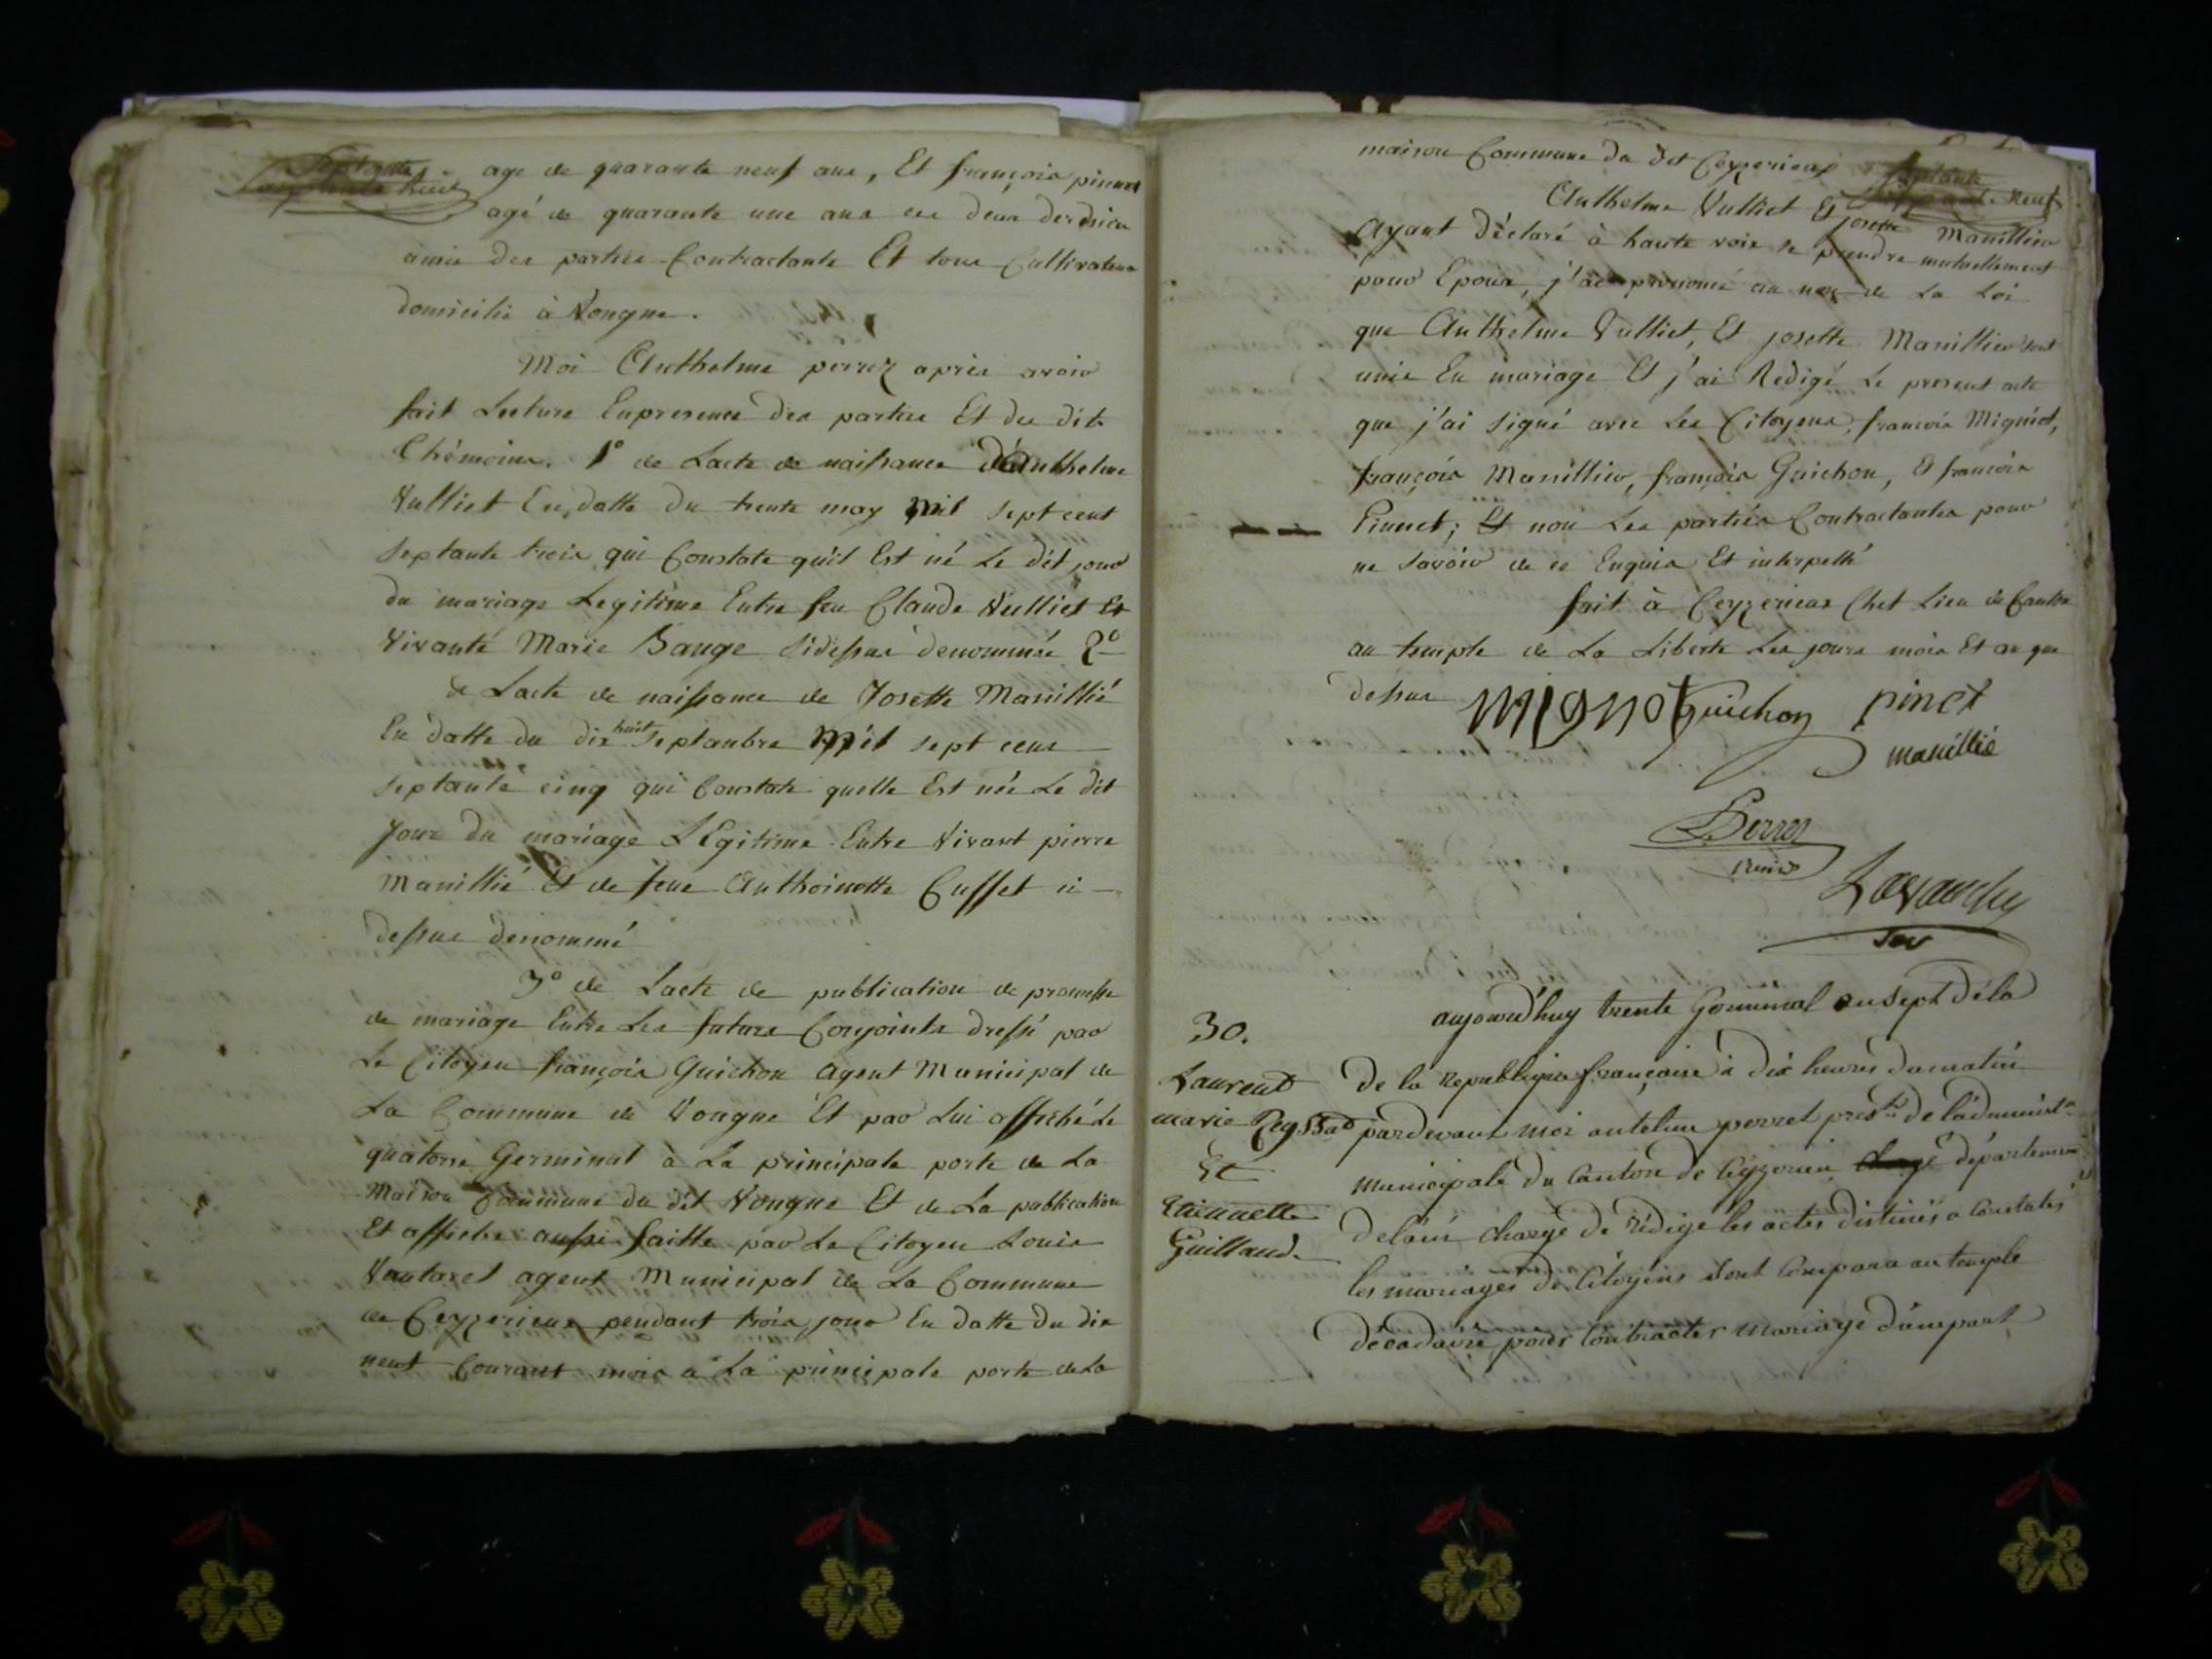 Septante
huit
age de quarante neuf ans, Et françois pinnet
agé de quarante une ans ces deux derniers
amis des parties Contractants Et tous Cultivateurs
domicilié à Vongne.
Moi Anthelme perrez après avoir
fait Lecture Enpresence des parties Et des dits
thémoins. 1° de Lacte de naissance d'Anthelme
Vulliet En datte du trente may mil sept cent
septante trois qui Constate qu'il Est né Le dit jour
du mariage Legitime Entre feu Claude Vulliet Et
Vivante Marie Bauge sidessus denommée 2°
de Lacte de naissance de Josette Manillié
En datte du dix huit septanbre mil sept cens
septante cinq qui Constate quelle Est née Le dit
Jour du mariage LEgitime Entre Vivant pierre
Manillié Et de feue Anthoinette Cusset ci
dessus denommé
3° de Lacte de publication de promesse
de mariage Entre Les futurs Conjoints dressé par
Le Citoyen françois Guichon Agent Municipal de
La Commune de Vongne Et par Lui affiché Le
quatorse Germinal à La principale porte de La
Maison Commune du dit Vongne Et de La publication
Et affiche aussi faitte par Le Citoyen Louis
Vautaret agent Municipal de La Commune
de Ceyzerieux pendant trois jour En datte du dix
neuf Courant mois a La principale porte de La
maison Commune du dit Ceyzerieux
Septante
Neuf
Anthelme Vulliet Et josette Manillier
Ayant Déclaré à haute voix se prendre mutuellement
pour Epoux, j'ai prononcé au nom de La Loi
que Anthelme Vulliet, Et josette Manillier sont
unis En mariage Et j'ai Redigé Le present acte
que j'ai signé avec Les Citoyens, francois Migniot,
françois Manillier, françois Guichon, Et francois
Pinnet; Et non Les parties Contractantes pour
ne savoir de ce Enquis Et interpellé
fait à Ceyzerieux Chef Lieu de Canton
au temple de La Liberté Les jours mois Et an que
dessus
mignot Guichon pinet
manillié
Perrez
Lavanchy
aujourd'huy trente Germinal an sept dela
De la Republique française à dix heures dumatin
pardevant moi antelme perret prest. de l'administ.
municipale du Canton de Ceyzerieu chargé départemen
delain chargé de rédigé les actes distinés a Constates
les mariages de Citoyens sont Compara au temple
décadaire pour Contracter mariage d'unepart
30.
Laurent
marie Reyssad
Et
Etiennette
Guilland.